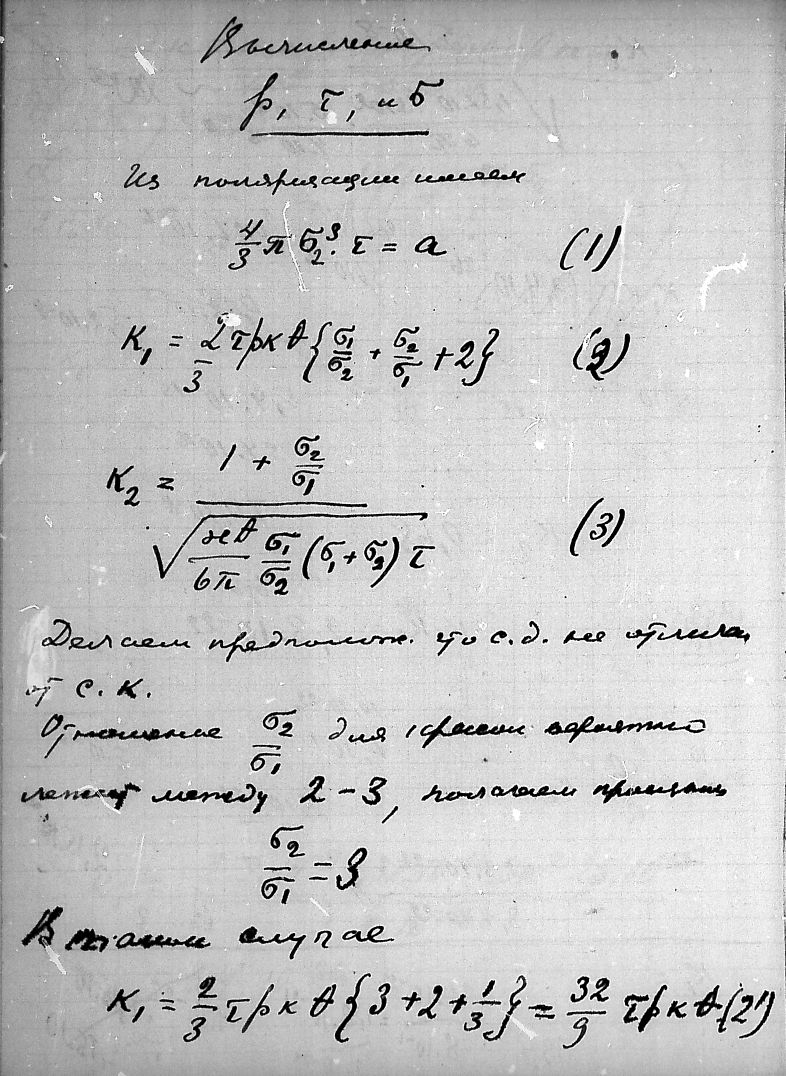 Вычисление
p, τ, и σ
Из поляризации имеем
4/3 π σ₂³ · τ = a (1)
K₁ = 2/3 τpκθ{σ₁/σ₂ + σ₂/σ₁ + 2} (2)
K₂ = (1 + σ₂/σ₁) / √(ϰθ/6π σ₁/σ₂ (σ₁ + σ₂) τ) (3)
Делаем предполож. что с.д. не отлича
от с.к.
Отношение σ₂/σ₁ для вероятно
лежит между 2 – 3, полагаем
σ₂/σ₁ = 3
В таком случае
K₁ = 2/3 τpκθ{3 + 2 + 1/3} = 32/9 τpκθ (2')